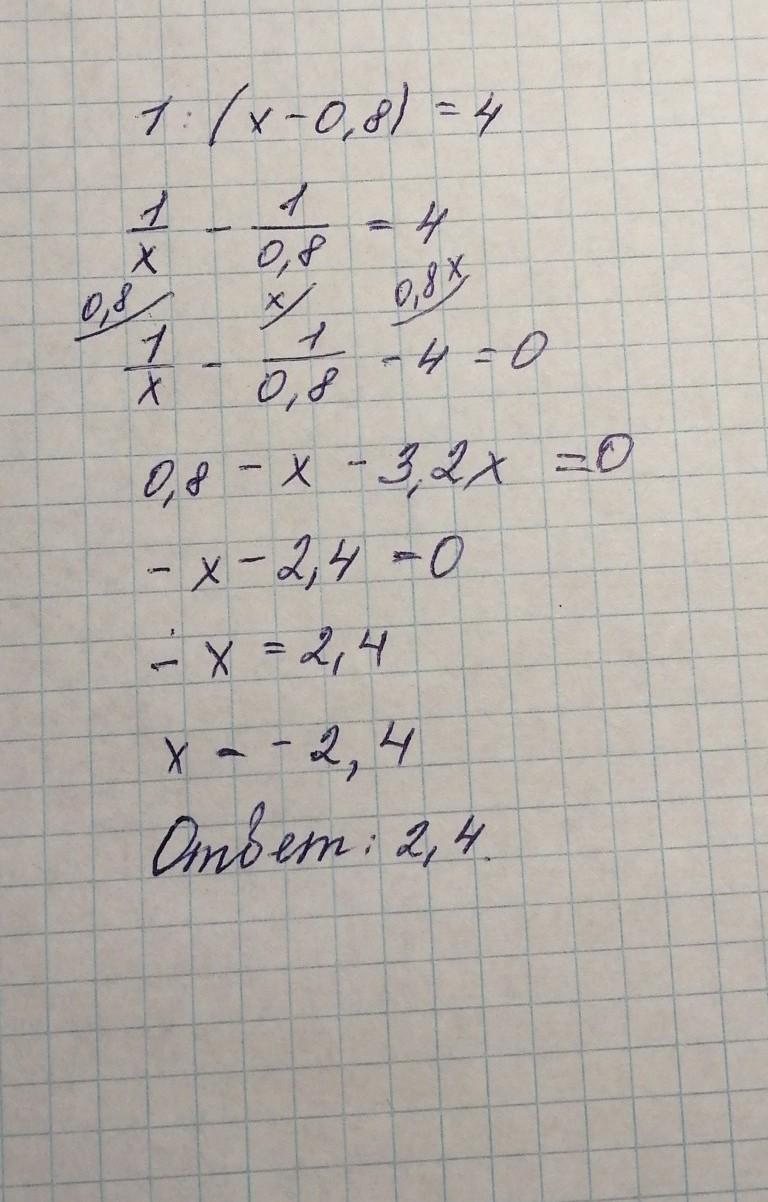 1 : (x - 0,8) = 4
1/x - 1/0,8 = 4
0,8/ x/ 0,8x/
1/x - 1/0,8 - 4 = 0
0,8 - x - 3,2x = 0
- x - 2,4 = 0
- x = 2,4
x = - 2,4
Ответ: 2,4.